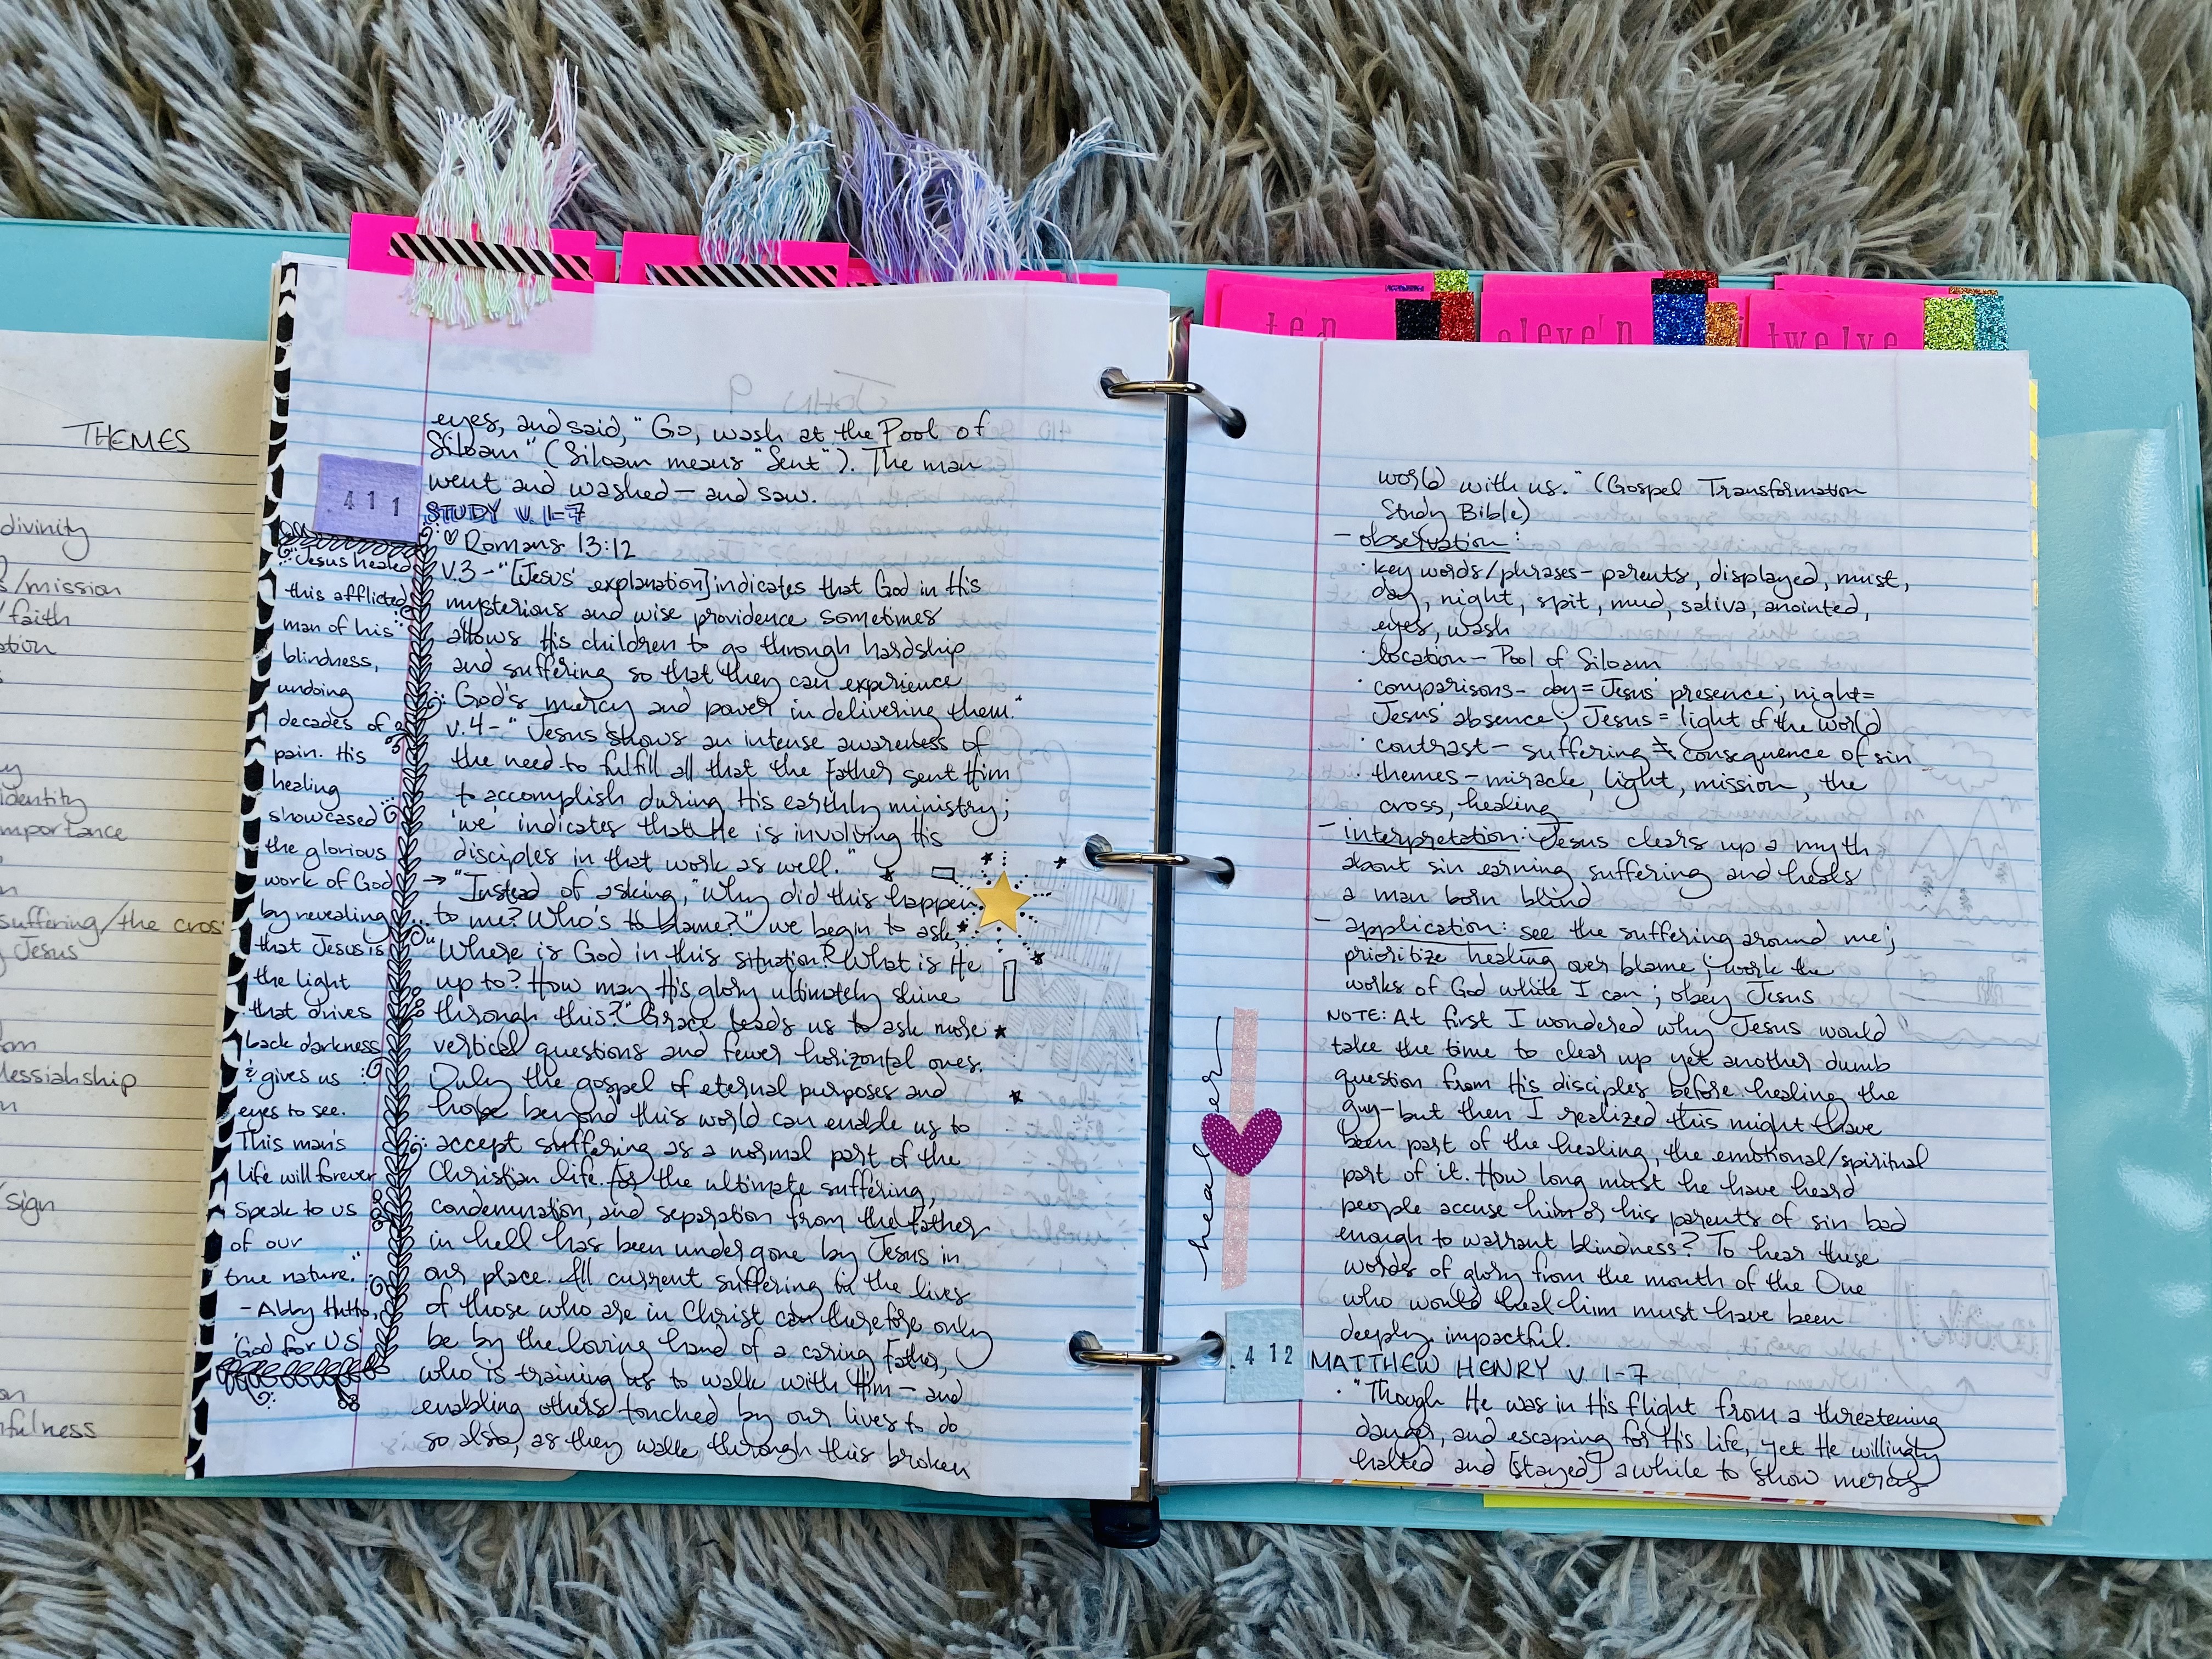 THEMES
divinity
s/mission
faith
ation
identity
importance
suffering/the cros
Jesus
Messiahship
/sign
thfulness
411
eyes, and said, "Go, wash at the Pool of
Siloam" (Siloam means "Sent"). The man
went and washed — and saw.
STUDY V. 1-7
♡ Romans 13:12
v.3 - "[Jesus' explanation] indicates that God in His
mysterious and wise providence sometimes
allows His children to go through hardship
and suffering so that they can experience
God's mercy and power in delivering them."
v.4 - "Jesus shows an intense awareness of
the need to fulfill all that the Father sent Him
to accomplish during His earthly ministry;
'we' indicates that He is involving His
disciples in that work as well."
→ "Instead of asking, "Why did this happen
to me? Who's to blame?" we begin to ask,
"Where is God in this situation? What is He
up to? How may His glory ultimately shine
through this?" Grace leads us to ask more
vertical questions and fewer horizontal ones.
Only the gospel of eternal purposes and
hope beyond this world can enable us to
accept suffering as a normal part of the
Christian life. For the ultimate suffering,
condemnation, and separation from the Father
in hell has been undergone by Jesus in
our place. All current suffering in the lives
of those who are in Christ can therefore only
be by the loving hand of a caring Father,
who is training us to walk with Him — and
enabling others touched by our lives to do
so also, as they walk through this broken
"Jesus healed
this afflicted
man of his
blindness,
undoing
decades of
pain. His
healing
showcased
the glorious
work of God
by revealing
that Jesus is
the light
that drives
back darkness
& gives us
eyes to see.
This man's
life will forever
speak to us
of our
true nature."
- Abby Hutto,
'God for Us'
ten
eleven
twelve
world with us." (Gospel Transformation
Study Bible)
- observation:
· key words/phrases - parents, displayed, must,
day, night, spit, mud, saliva, anointed,
eyes, wash
· location - Pool of Siloam
· comparisons - day = Jesus' presence; night =
Jesus' absence; Jesus = light of the world
· contrast - suffering ≠ consequence of sin
· themes - miracle, light, mission, the
cross, healing
- interpretation: Jesus clears up a myth
about sin earning suffering and heals
a man born blind
- application: see the suffering around me;
prioritize healing over blame; work the
works of God while I can; obey Jesus
NOTE: At first I wondered why Jesus would
take the time to clear up yet another dumb
question from His disciples before healing the
guy - but then I realized this might have
been part of the healing, the emotional/spiritual
part of it. How long must he have heard
people accuse him or his parents of sin bad
enough to warrant blindness? To hear these
words of glory from the mouth of the One
who would heal him must have been
deeply impactful.
healer
412
MATTHEW HENRY V. 1-7
· "Though He was in His flight from a threatening
danger, and escaping for His life, yet He willingly
halted and [stayed] awhile to show mercy